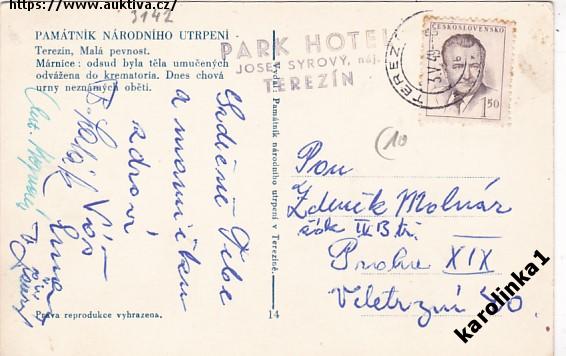 https://www.auktiva.cz/
3142
PAMÁTNÍK NÁRODNÍHO UTRPENÍ
Terezín, Malá pevnost.
Márnice: odsud byla těla umučených
odvážena do krematoria. Dnes chová
urny neznámých obětí.
PARK HOTEL
JOSEF SYROVÝ, náj.
TEREZÍN
ČESKOSLOVENSKO
1,50
TEREZ
10
Srdečně Tebe
a maminku
zdraví
Vydal: Památník národního utrpení v Terezíně.
14
Pan
Zdeněk Molnár
žák IV.B tř.
Praha XIX
Veletržní
Práva reprodukce vyhrazena.
karolinka1